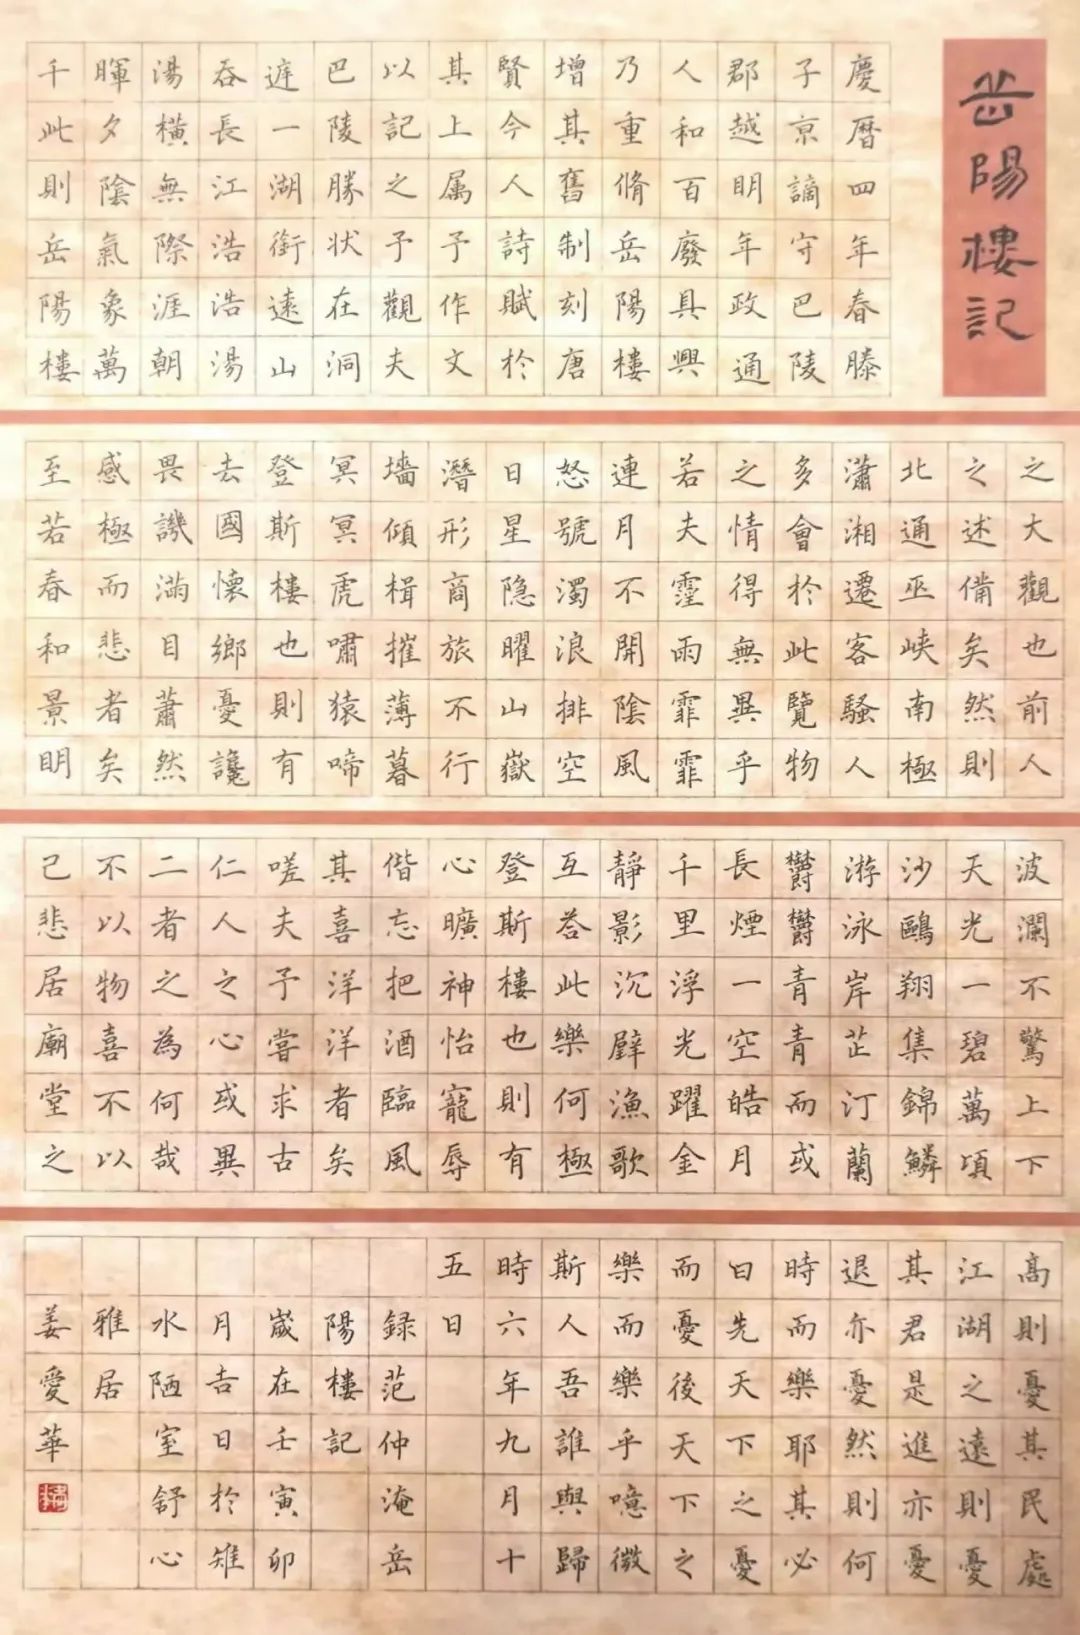 岳陽樓記
慶暦四年春滕
子京謫守巴陵
郡越明年政通
人和百廢具興
乃重脩岳陽樓
增其舊制刻唐
賢今人詩賦於
其上属予作文
以記之予觀夫
巴陵勝状在洞
庭一湖銜遠山
吞長江浩浩湯
湯橫無際涯朝
暉夕陰氣象萬
千此則岳陽樓
之大觀也前人
之述備矣然則
北通巫峡南極
瀟湘遷客騷人
多會於此覽物
之情得無異乎
若夫霪雨霏霏
連月不開陰風
怒號濁浪排空
日星隐曜山嶽
潛形商旅不行
墻傾楫摧薄暮
冥冥虎嘯猿啼
登斯樓也則有
去國懷鄉憂讒
畏譏滿目蕭然
感極而悲者矣
至若春和景明
波瀾不驚上下
天光一碧萬頃
沙鷗翔集錦鱗
游泳岸芷汀蘭
欝欝青青而或
長煙一空皓月
千里浮光躍金
靜影沉璧漁歌
互荅此樂何極
登斯樓也則有
心曠神怡寵辱
偕忘把酒臨風
其喜洋洋者矣
嗟夫予嘗求古
仁人之心或異
二者之為何哉
不以物喜不以
己悲居廟堂之
高則憂其民處
江湖之遠則憂
其君是進亦憂
退亦憂然則何
時而樂耶其必
曰先天下之憂
而憂後天下之
樂而樂乎噫微
斯人吾誰與歸
時六年九月十
五日
録范仲淹岳
陽樓記
歲在壬寅卯
月吉日於雉
水陋室舒心
雅居
姜愛華